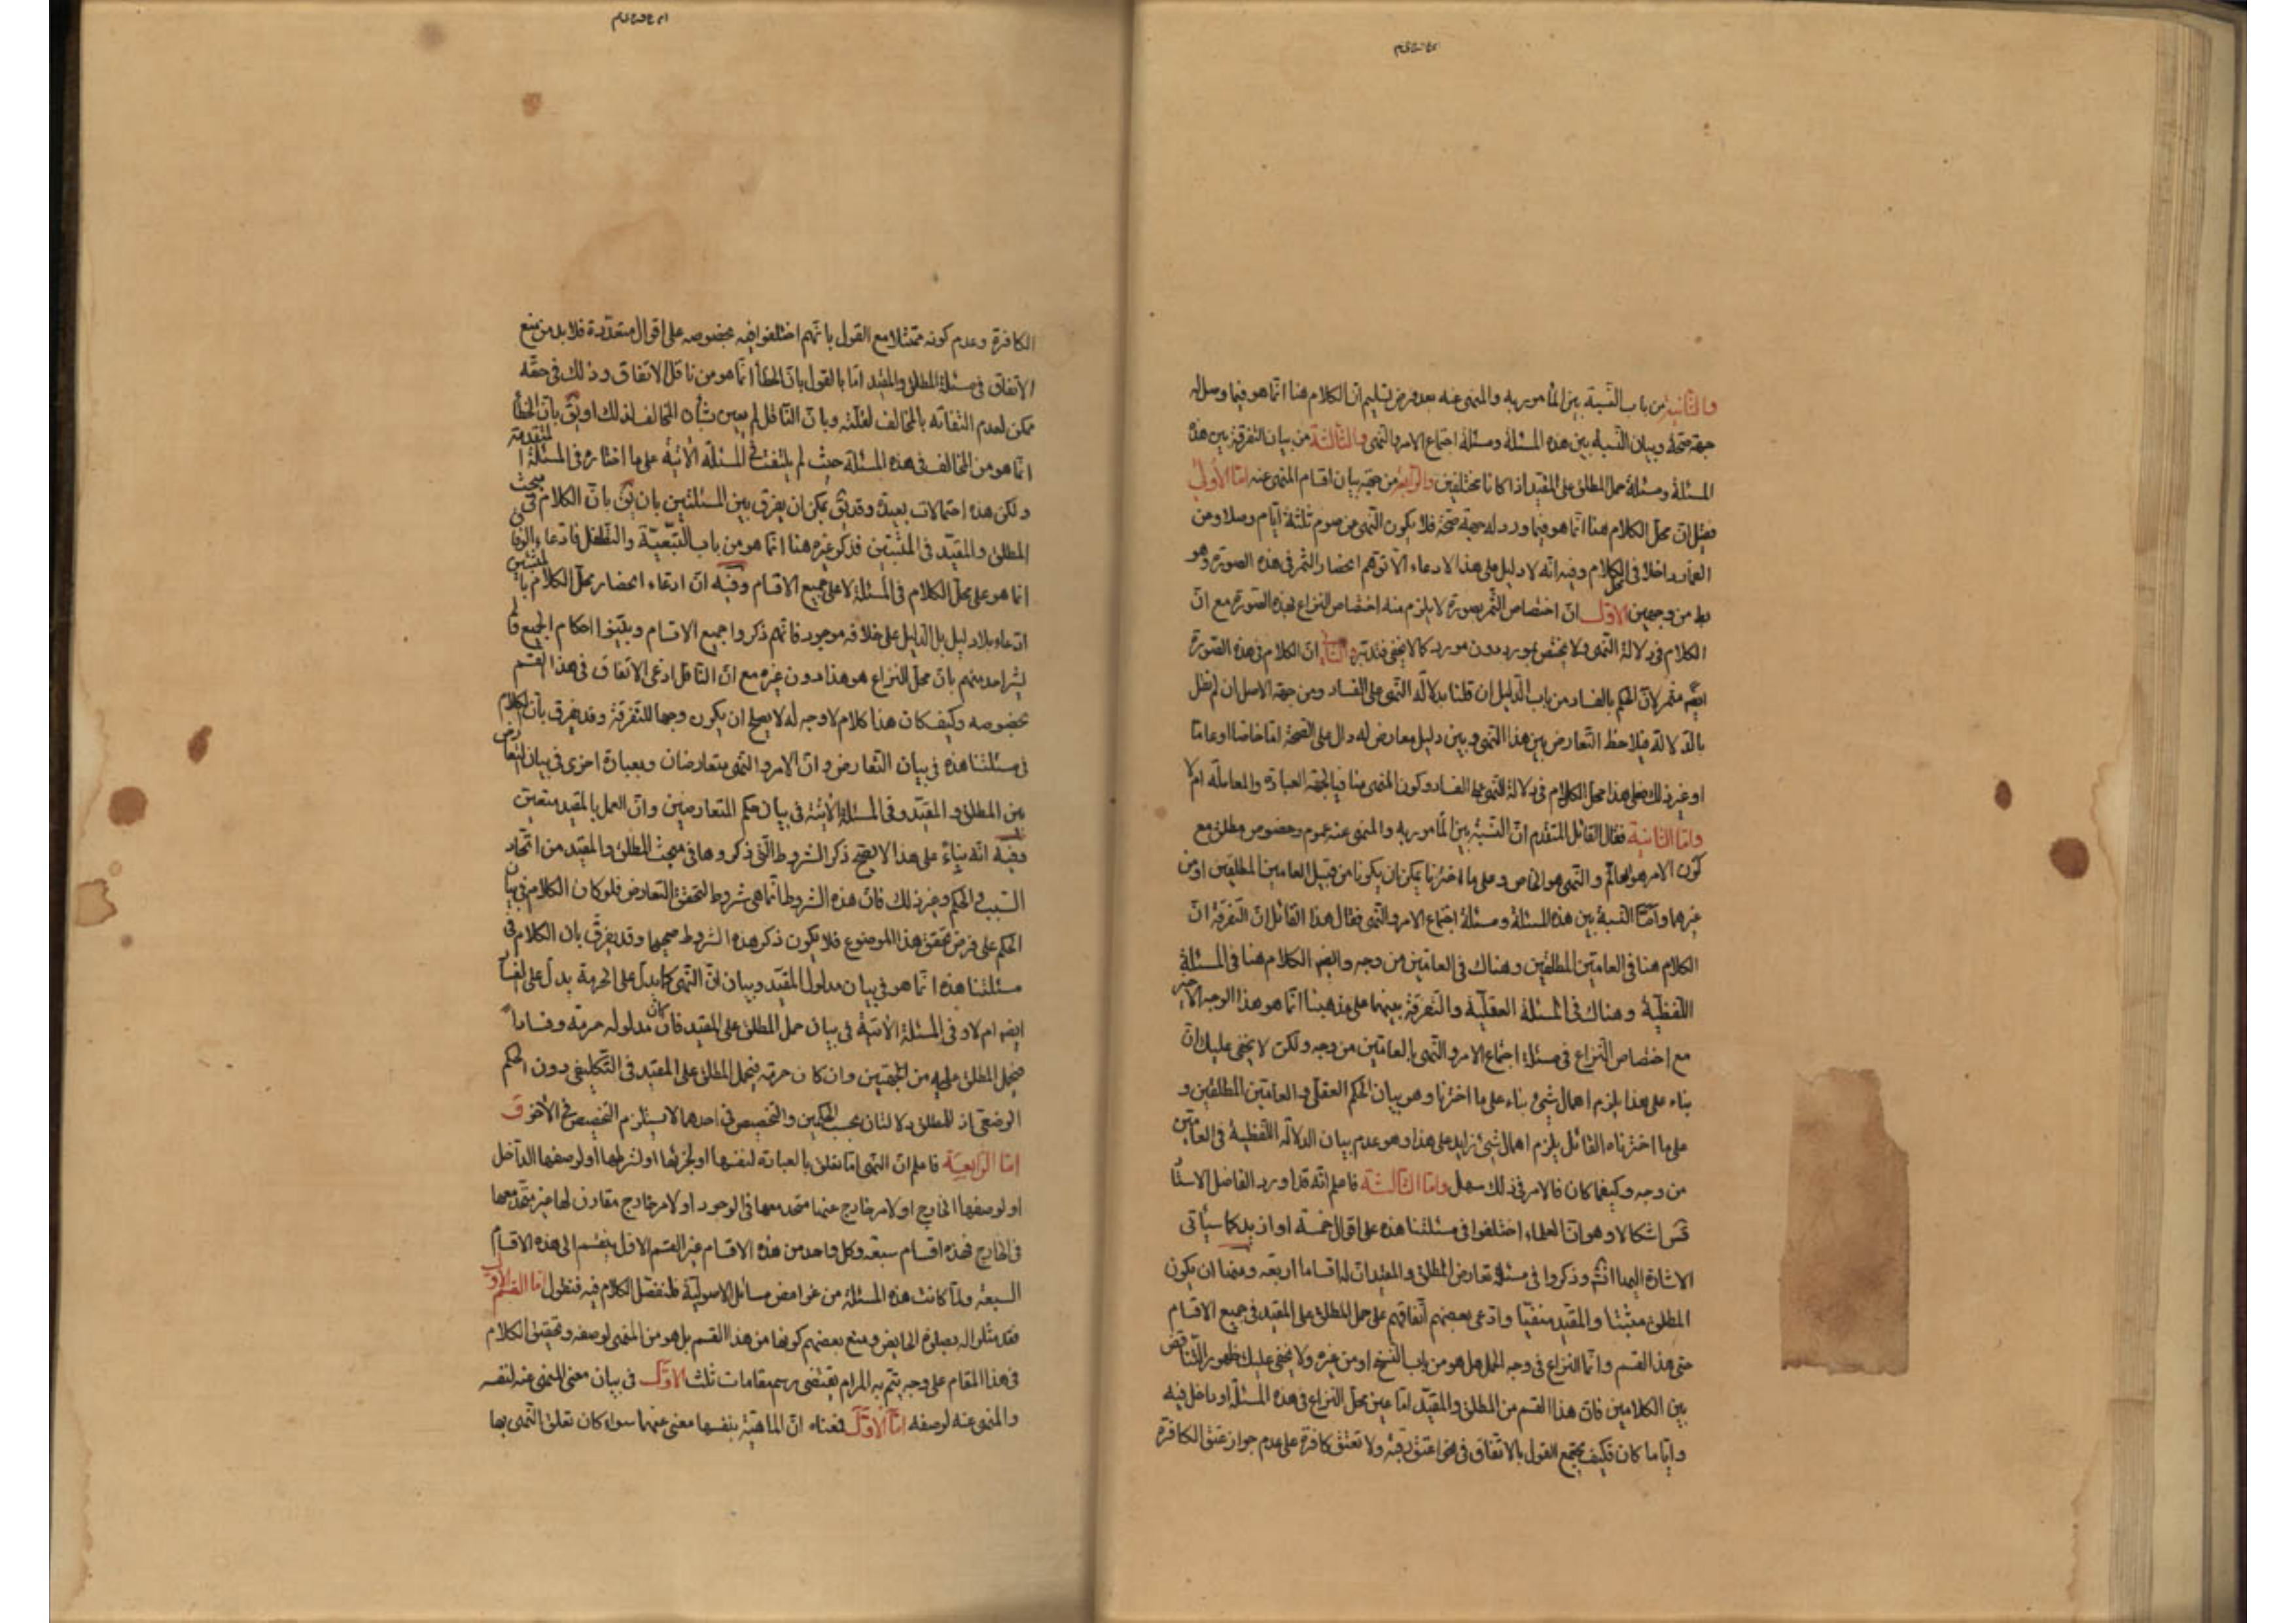 والثانية من باب النسبة بين المأمور به والمنهى عنه بعد فرض تسليم ان الكلام هنا انما هو فيما وصل له
جهة صحة وبيان النسبة بين هذه المسئلة ومسئلة اجتماع الامر والنهى والثالثة من بيان التفرقة بين هذه
المسئلة ومسئلة حمل المطلق على المقيد اذا كانا مختلفين والرابعة من جهة بيان اقسام المنهى عنه اما الأولى
فقيل ان محل الكلام هنا انما هو فيما ورد له جهة صحة فلا يكون النهى من صوم ثلثة ايام وصلا ومن
القمار داخلا فى محل الكلام وفيه انه لا دليل على هذا الادعاء الا توهم انحصار الثمر فى هذه الصورة وهو
بط من وجهين الاول ان اختصاص الثمر بصورة لا يلزم منه اختصاص النزاع بهذه الصورة مع ان
الكلام فى دلالة النهى ولا يختص بمورد دون مورد كما لا يخفى فتدبر والثانى ان الكلام فى هذه الصورة
ايضا مثمر لان الحكم بالفساد من باب الدليل ان قلنا بدلالة النهى على الفساد ومن جهة الاصل ان لم نقل
بالدلالة فيلاحظ التعارض بين هذا النهى وبين دليل معارض له دال على الصحة اما خاصا او عاما
او غير ذلك فعلى هذا محل الكلام فى دلالة النهى على الفساد وكون المنهى منافيا لجهة العبادة والمعاملة ام لا
واما الثانية فقال القائل المتقدم ان النسبة بين المأمور به والمنهى عنه عموم وخصوص مطلق مع
كون الامر هو العام والنهى هو الخاص وعلى ما اخترنا يمكن ان يكونا من قبيل العامين المطلقين او من
غيرهما واما النسبة بين هذه المسئلة ومسئلة اجتماع الامر والنهى فقال هذا القائل ان التفرقة ان
الكلام هنا فى العامين المطلقين وهناك فى العامين من وجه وايضا الكلام هنا فى المسئلة
اللفظية وهناك فى المسئلة العقلية والتفرقة بينهما على مذهبنا انما هو هذا الوجه الاخير
مع اختصاص النزاع فى مسئلة اجتماع الامر والنهى بالعامين من وجه ولكن لا يخفى عليك ان
بناء على هذا يلزم اهمال شئ بناء على ما اخترنا وهو بيان الحكم العقلى فى العامين المطلقين و
على ما اختاره القائل يلزم اهمال شئ زايد على هذا وهو عدم بيان الدلالة اللفظية فى العامين
من وجه وكيفما كان فالامر فى ذلك سهل واما الثالثة فاعلم انه قد اورد الفاضل الاستا
اشكالا وهو ان العلماء اختلفوا فى مسئلتنا هذه على اقوال خمسة او ازيد كما سيأتى
الاشارة اليها انش وذكروا فى مسئلة تعارض المطلق والمقيد ان له اقساما اربعة ومنها ان يكون
المطلق مثبتا والمقيد منفيا وادعى بعضهم اتفاقهم على حمل المطلق على المقيد فى جميع الاقسام
حتى هذا القسم وانما النزاع فى وجه الحمل هل هو من باب النسخ او من غيره ولا يخفى عليك ظهور التناقض
بين الكلامين فان هذا القسم من المطلق والمقيد اما عين محل النزاع فى هذه المسئلة او داخل فيه
واياما كان فكيف يجتمع القول بالاتفاق فى نحو اعتق رقبة ولا تعتق كافرة على عدم جواز عتق الكافرة
الكافرة وعدم كونه ممتثلا مع القول بانهم اختلفوا فيه بخصوصه على اقوال متعددة فلا بد من منع
الاتفاق فى مسئلة المطلق والمقيد اما بالقول بان الخطأ انما هو من ناقل الاتفاق وذلك فى حقه
ممكن لعدم التفاته بالمخالف لغفلته وبان الناقل لم يعين شأن المخالف لذلك او يق بان الخطأ
انما هو من المخالف فى هذه المسئلة حيث لم يلتفت فى المسئلة الآتية على ما اختاره فى المسئلة المتقدمة
ولكن هذه احتمالات بعيدة وقد يق يمكن ان يفرق بين المسئلتين بان يق بان الكلام فى مبحث
المطلق والمقيد فى المثبتين فذكر غيره هنا انما هو من باب التبعية والتطفل فادعاء الوفاق
انما هو على محل الكلام فى المسئلة لا على جميع الاقسام وفيه ان ادعاء انحصار محل الكلام بالمثبتين
ادعاء بلا دليل بل الدليل على خلافه موجود فانهم ذكروا جميع الاقسام وبينوا احكام الجميع ولم
يشر احد منهم بان محل النزاع هو هذا دون غيره مع ان الناقل ادعى الاتفاق فى هذا القسم
بخصوصه وكيف كان هذا كلام لا وجه له لا يصلح ان يكون وجها للتفرقة وقد يفرق بان الكلام
فى مسئلتنا هذه فى بيان التعارض وان الامر والنهى متعارضان وبعبارة اخرى فى بيان التعارض
بين المطلق والمقيد وفى المسئلة الآتية فى بيان حكم المتعارضين وان العمل بالمقيد متعين
وفيه انه بناء على هذا لا يصح ذكر الشروط التى ذكروها فى مبحث المطلق والمقيد من اتحاد
السبب والحكم وغير ذلك فان هذه الشروط انما هى شروط لتحقق التعارض فلو كان الكلام فى بيان
الحكم على فرض تحقق هذا الموضوع فلا يكون ذكر هذه الشروط صحيحا وقد يفرق بان الكلام فى
مسئلتنا هذه انما هو فى بيان مدلول المقيد وبيان ان النهى كما يدل على الحرمة يدل على الفساد
ايضا ام لا وفى المسئلة الآتية فى بيان حمل المطلق على المقيد فان كان مدلوله حرمة وفسادا
فيحمل المطلق عليه من الجهتين وان كان حرمة فيحمل المطلق على المقيد فى التكليفى دون الحكم
الوضعى اذ للمطلق دلالتان بحسب الحكمين والتخصيص فى احدهما لا يستلزم التخصيص فى الآخر
اما الرابعية فاعلم ان النهى اما تعلق بالعبادة لنفسها او لجزئها او لشرطها او لوصفها الداخل
او لوصفها الخارج او لامر خارج عنها متحد معها فى الوجود او لامر خارج مقارن لها غير متحد معها
فى الخارج فهذه اقسام سبعة وكل واحد من هذه الاقسام غير القسم الاول ينقسم الى هذه الاقسام
السبعة ولما كانت هذه المسئلة من غوامض مسائل الاصولية فلنفصل الكلام فيه فنقول اما القسم الاول
فقد مثلوا له بصلوة الحايض ومنع بعضهم كونها من هذا القسم بل هو من المنهى لوصفه وتحقيق الكلام
فى هذا المقام على وجه يتم به المرام يقتضى رسم مقامات ثلث الاول فى بيان معنى المنهى عنه لنفسه
والمنهى عنه لوصفه اما الاول فمعناه ان الماهية بنفسها منهى عنها سواء كان تعلق النهى بها